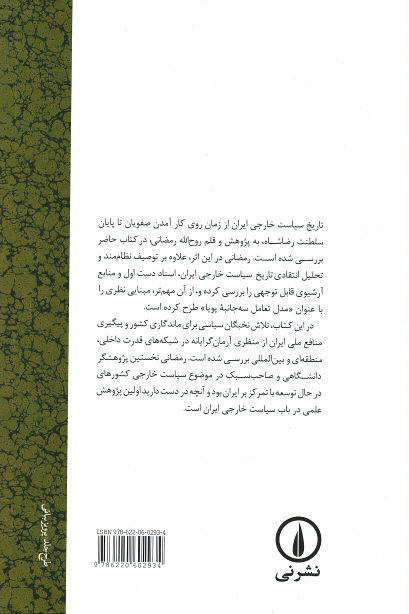 تاریخ سیاست خارجی ایران از زمان روی کار آمدن صفویان تا پایان
سلطنت رضاشاه، به پژوهش و قلم روح‌الله رمضانی، در کتاب حاضر
بررسی شده است. رمضانی در این اثر، علاوه بر توصیف نظام‌مند و
تحلیل انتقادی تاریخ سیاست خارجی ایران، اسناد دست اول و منابع
آرشیوی قابل توجهی را بررسی کرده و، از آن مهم‌تر، مبنایی نظری را
با عنوان «مدل تعامل سه‌جانبهٔ پویا» طرح کرده است.
در این کتاب، تلاش نخبگان سیاسی برای ماندگاری کشور و پیگیری
منافع ملی ایران از منظری آرمان‌گرایانه در شبکه‌های قدرت داخلی،
منطقه‌ای و بین‌المللی بررسی شده است. رمضانی نخستین پژوهشگر
دانشگاهی و صاحب‌سبک در موضوع سیاست خارجی کشورهای
در حال توسعه با تمرکز بر ایران بود و آنچه در دست دارید اولین پژوهش
علمی در باب سیاست خارجی ایران است.
ISBN 978-622-06-0293-4
9 786220 602934
نشرنی
طرح جلد: پرویز بیانی